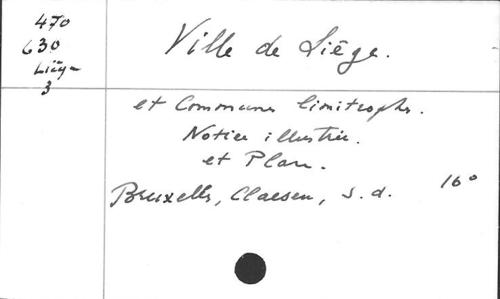 470
630
Liége
3
Ville de Liége.
et Communes limitrophes.
Notice illustrée.
et Plan.
Bruxelles, Claesen, s.d. 16°